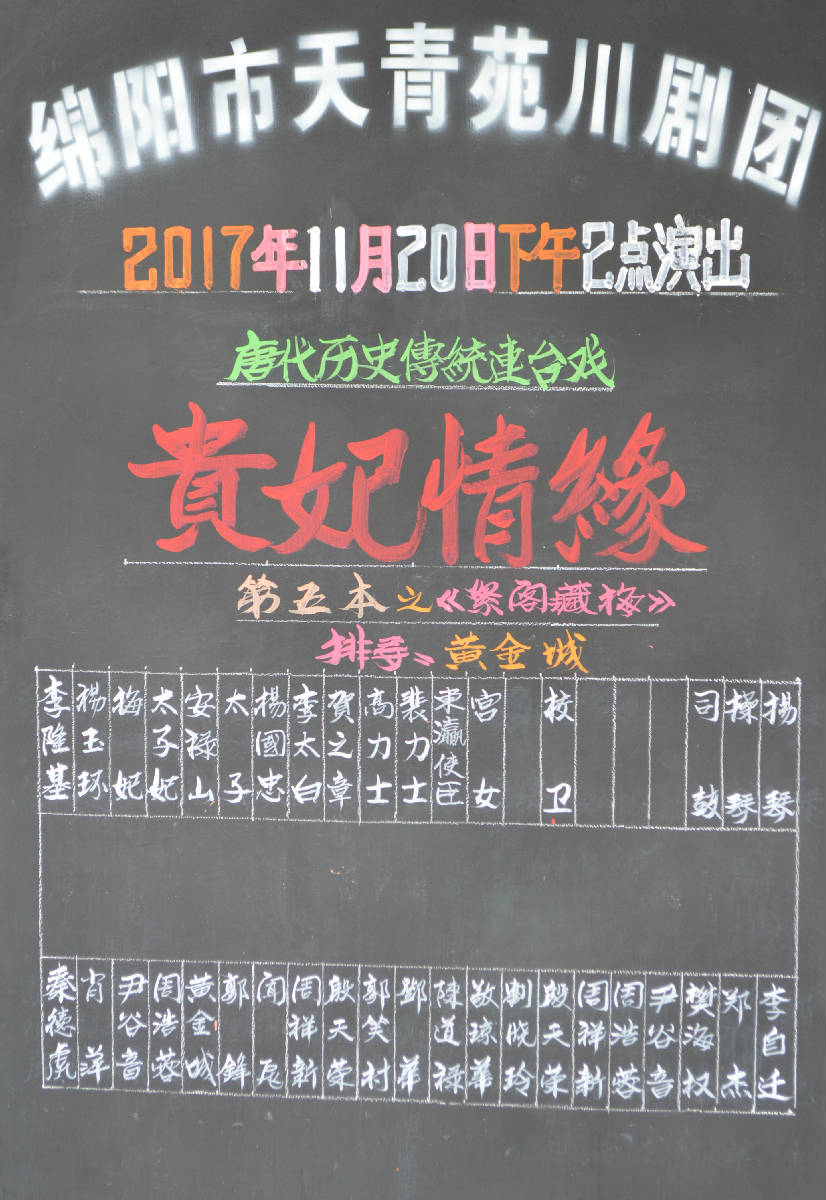 绵阳市天青苑川剧团
2017年11月20日下午2点演出
唐代历史傳統連台戏
貴妃情緣
第五本之《絮阁藏梅》
排导：黄金城
李隆基
杨玉环
梅妃
太子妃
安禄山
太子
揚國忠
李太白
賀之章
高力士
裴力士
東瀛使臣
宫女
校卫
司鼓
操琴
揚琴
秦德虎
肖萍
尹谷音
周浩蓉
黄金城
郭鋒
周祥新
殷天荣
郭笑村
鄧華
陳道禄
敬琼華
劉晓玲
殷天荣
周祥新
周浩蓉
尹谷音
樊海权
郑杰
李自迁